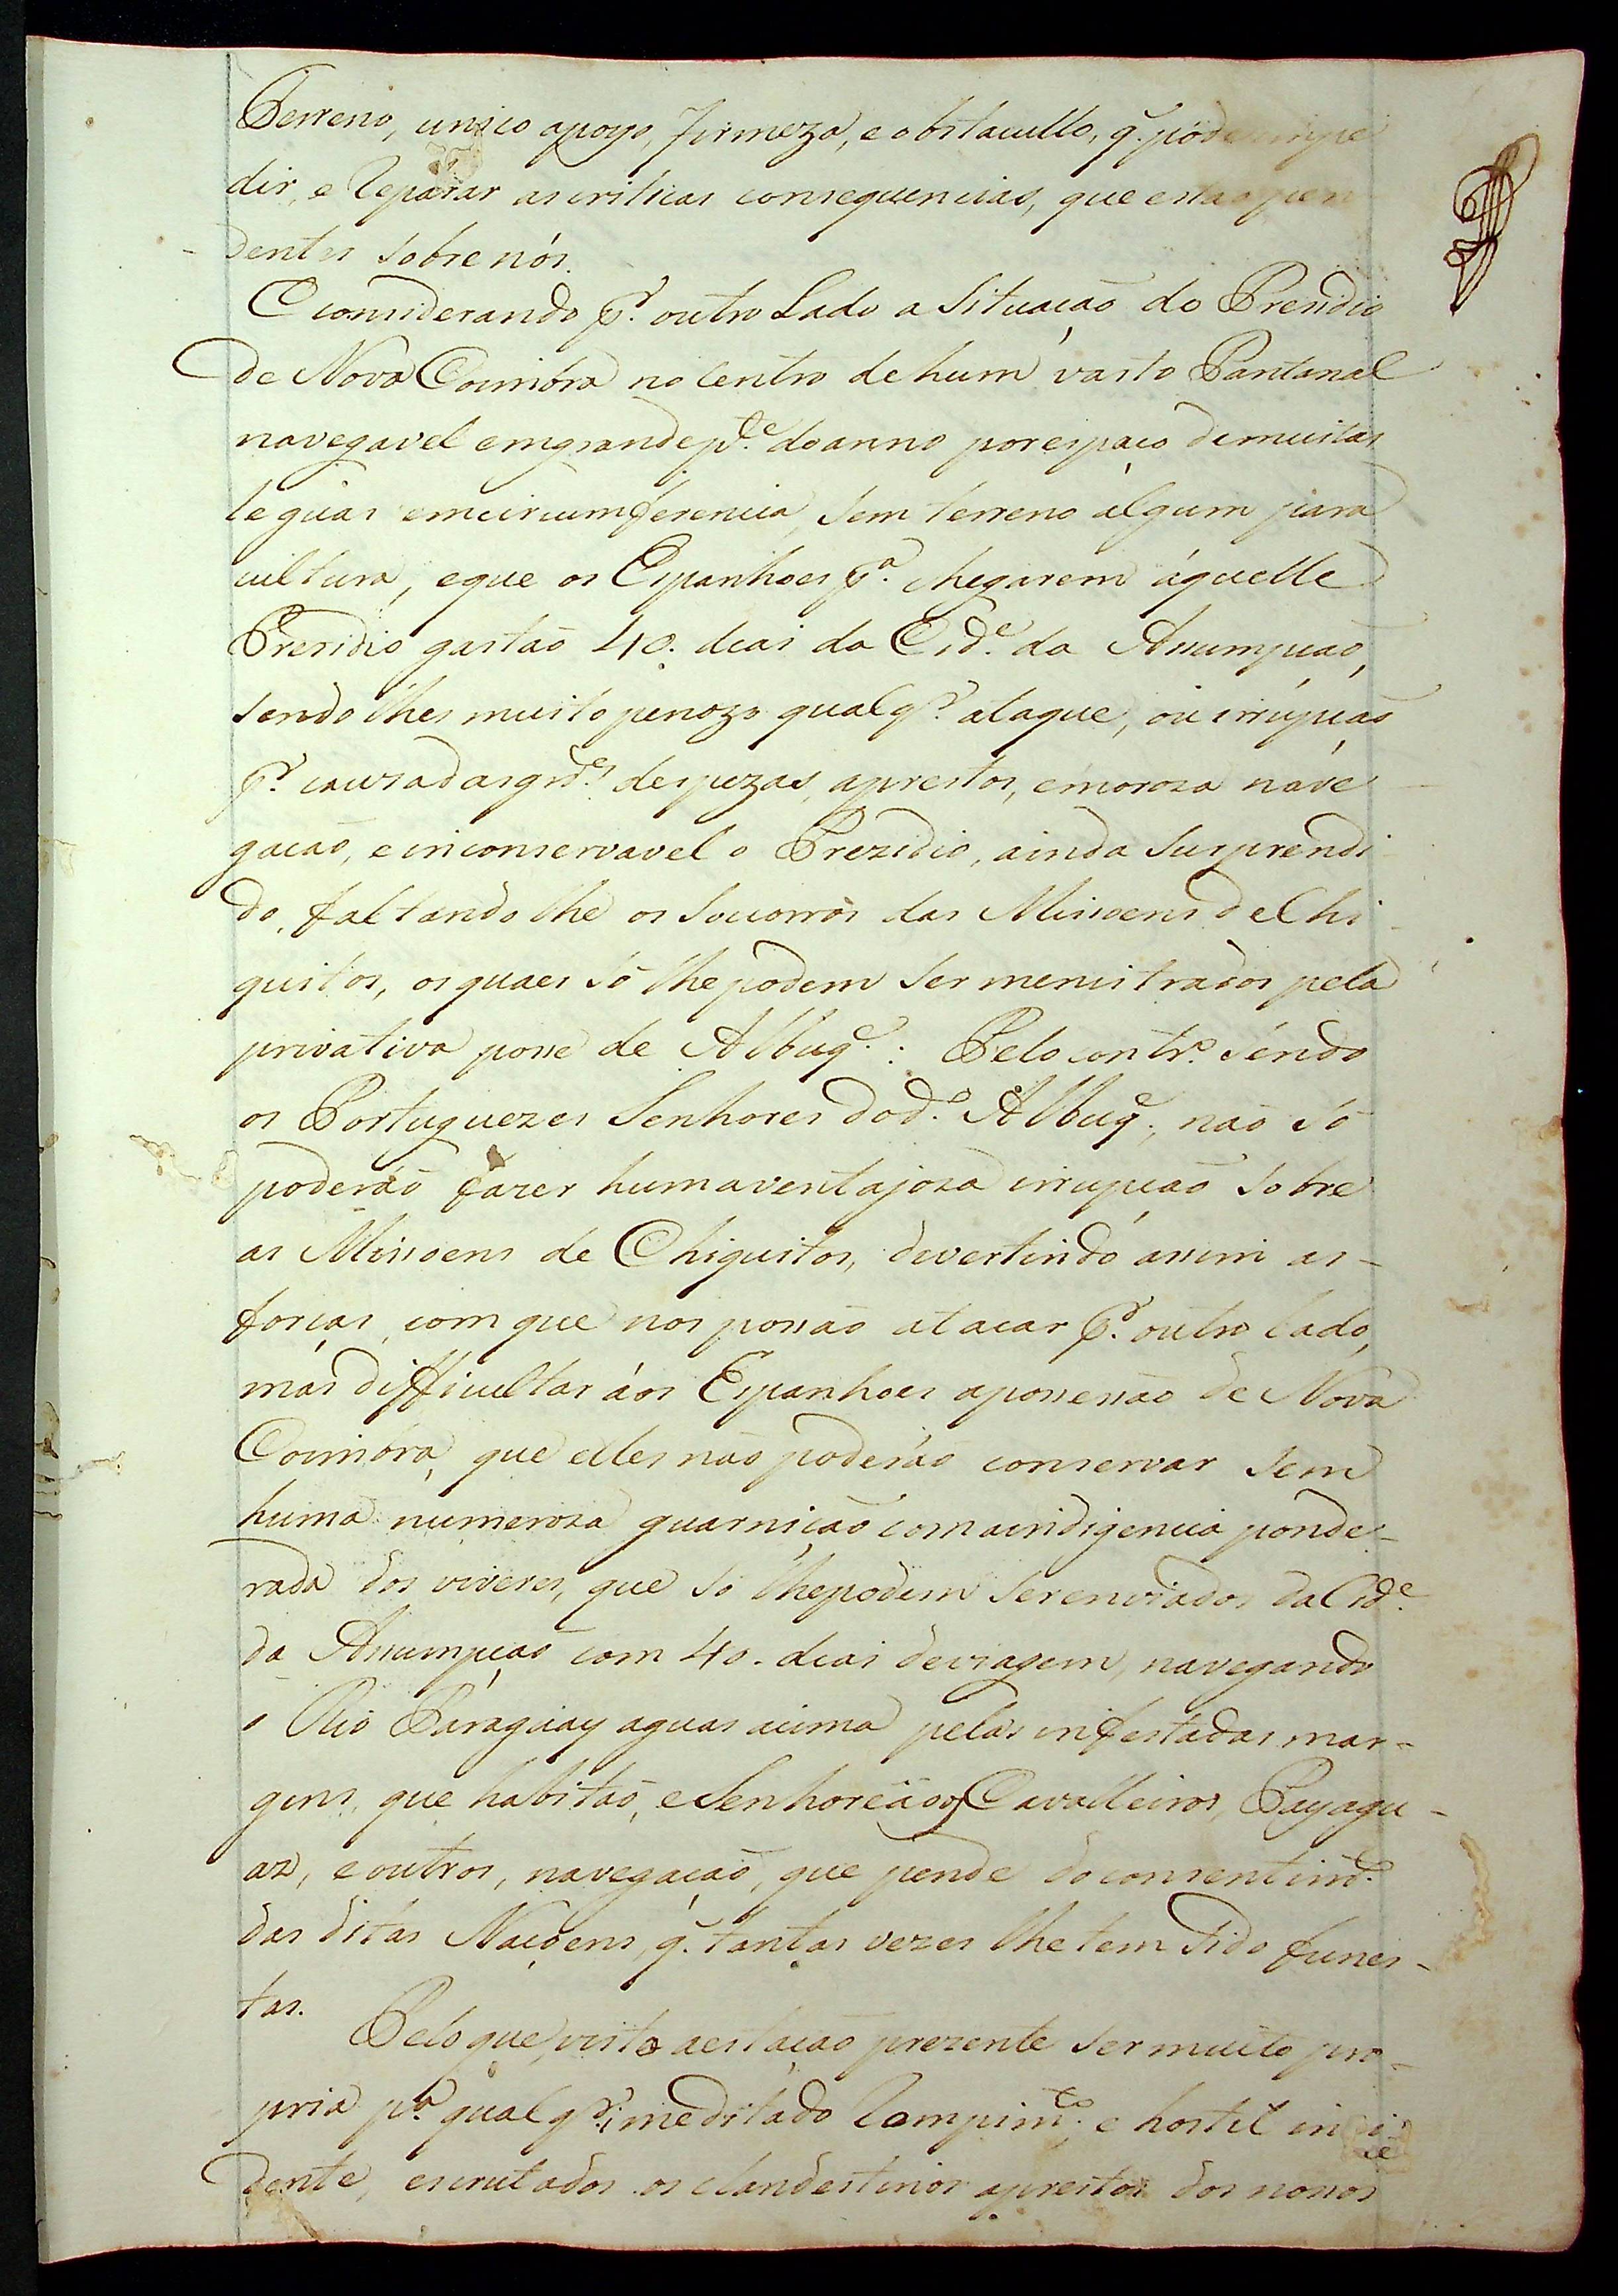 Terreno, unico apoyo, firmeza, e obstacullo, q. póde impe
dir, e reparar as criticas consequencias, que estão pen
dentes sobre nós.
E considerando p.r outro Lado a Situação do Presidio
de Nova Coimbra no Centro de hum vasto Pantanal
navegavel em grande p.te do anno por espaço de muitas
leguas em circumferencia, sem terreno algum para
cultura, e que os Espanhoes p.a chegarem áquelle
Presidio gastão 40. dias da Cid.e da Assumpção,
sendo lhes muito penozo qualq.r ataque, ou irrupção
p.r cauza das gr.des despezas, aprestos, e moroza nave
gação, e inconservavel o Prezidio, ainda surprendi
do, faltando lhe os socorros das Missoens de Chi
quitos, os quaes só lhe podem ser menistrados pela
privativa posse de Albuq.e: Pelo contr.o sendo
os Portuguezes Senhores do d.o Albuq.e, não só
poderão fazer huma ventajoza irrupção sobre
as Missoens de Chiquitos, divertindo assim as
forças, com que nos possão atacar p.r outro lado,
mas difficultar áos Espanhoes a possessão de Nova
Coimbra, que elles não poderão conservar sem
huma numeroza guarnição com a indigencia ponde-
rada dos viveres, que só lhe podem ser enviados da Cid.e
da Assumpção com 40. dias de viagem, navegando
o Rio Paraguay aguas acima pelas infestadas mar-
gens, que habitão, e Senhorêão os Cavalleiros, Payagu-
az, e outros, navegação, que pende do consentim.to
das ditas Naçoens, q. tantas vezes lhe tem sido funes-
tas.
Pelo que, visto a estação prezente ser muito pro-
pria p.a qualq.r immeditado rompim.to, e hostil inci
dente, escrutados os clandestinos aprestos dos nossos